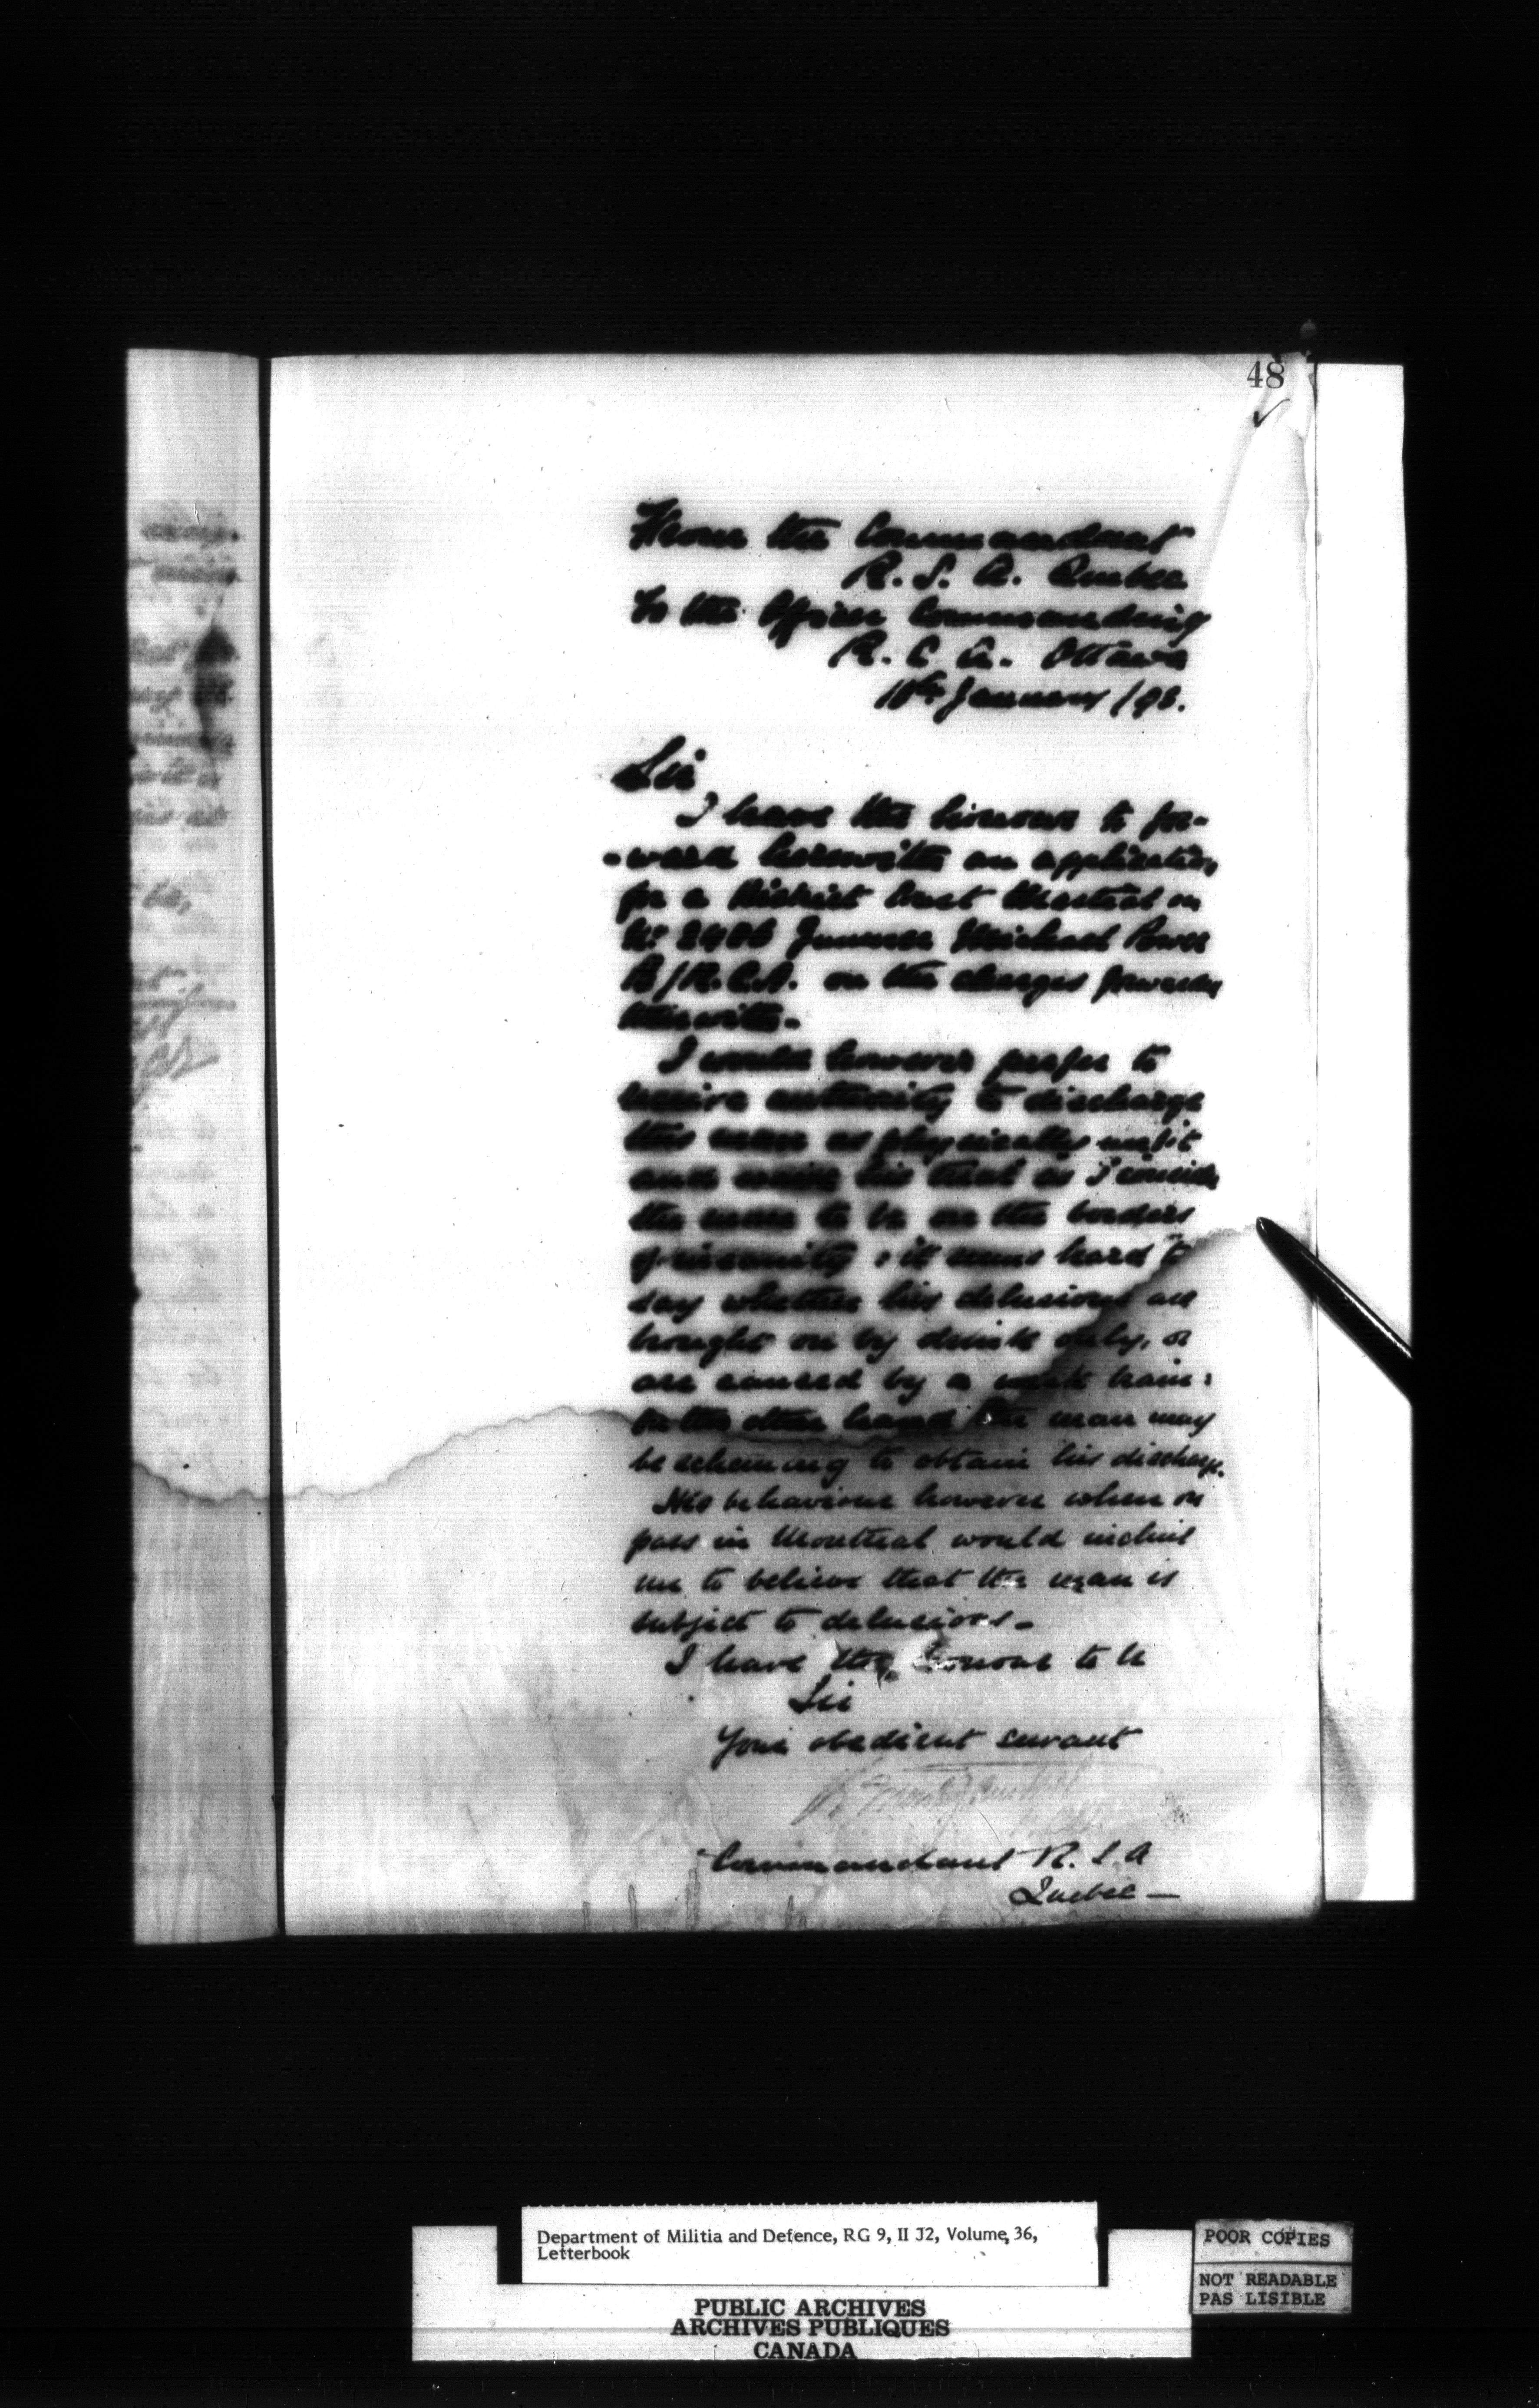 48
From the Commandant
R. S. A. Quebec
To the Officer Commanding
R. C. A. Ottawa
January /98.
Sir
I have the honour to for-
-ward herewith an application
for a District Court Martial on
No Gunner Michael Power
B/R.C.A. on the charges forwarded
therewith.
I would however prefer to
receive authority to discharge
this man as physically unfit
and his trial as I consider
the man to be on the borders
of insanity, it seems hard to
say whether his delusions are
brought on by drink only, or
are caused by a weak brain:
On the other hand the man may
be scheming to obtain his discharge.
His behaviour however when on
pass in Montreal would incline
me to believe that the man is
subject to delusions -
I have the honour to be
Sir
Your obedient servant
Commandant R. S. A
Quebec -
Department of Militia and Defence, RG 9, II J2, Volume 36,
Letterbook
PUBLIC ARCHIVES
ARCHIVES PUBLIQUES
CANADA
POOR COPIES
NOT READABLE
PAS LISIBLE